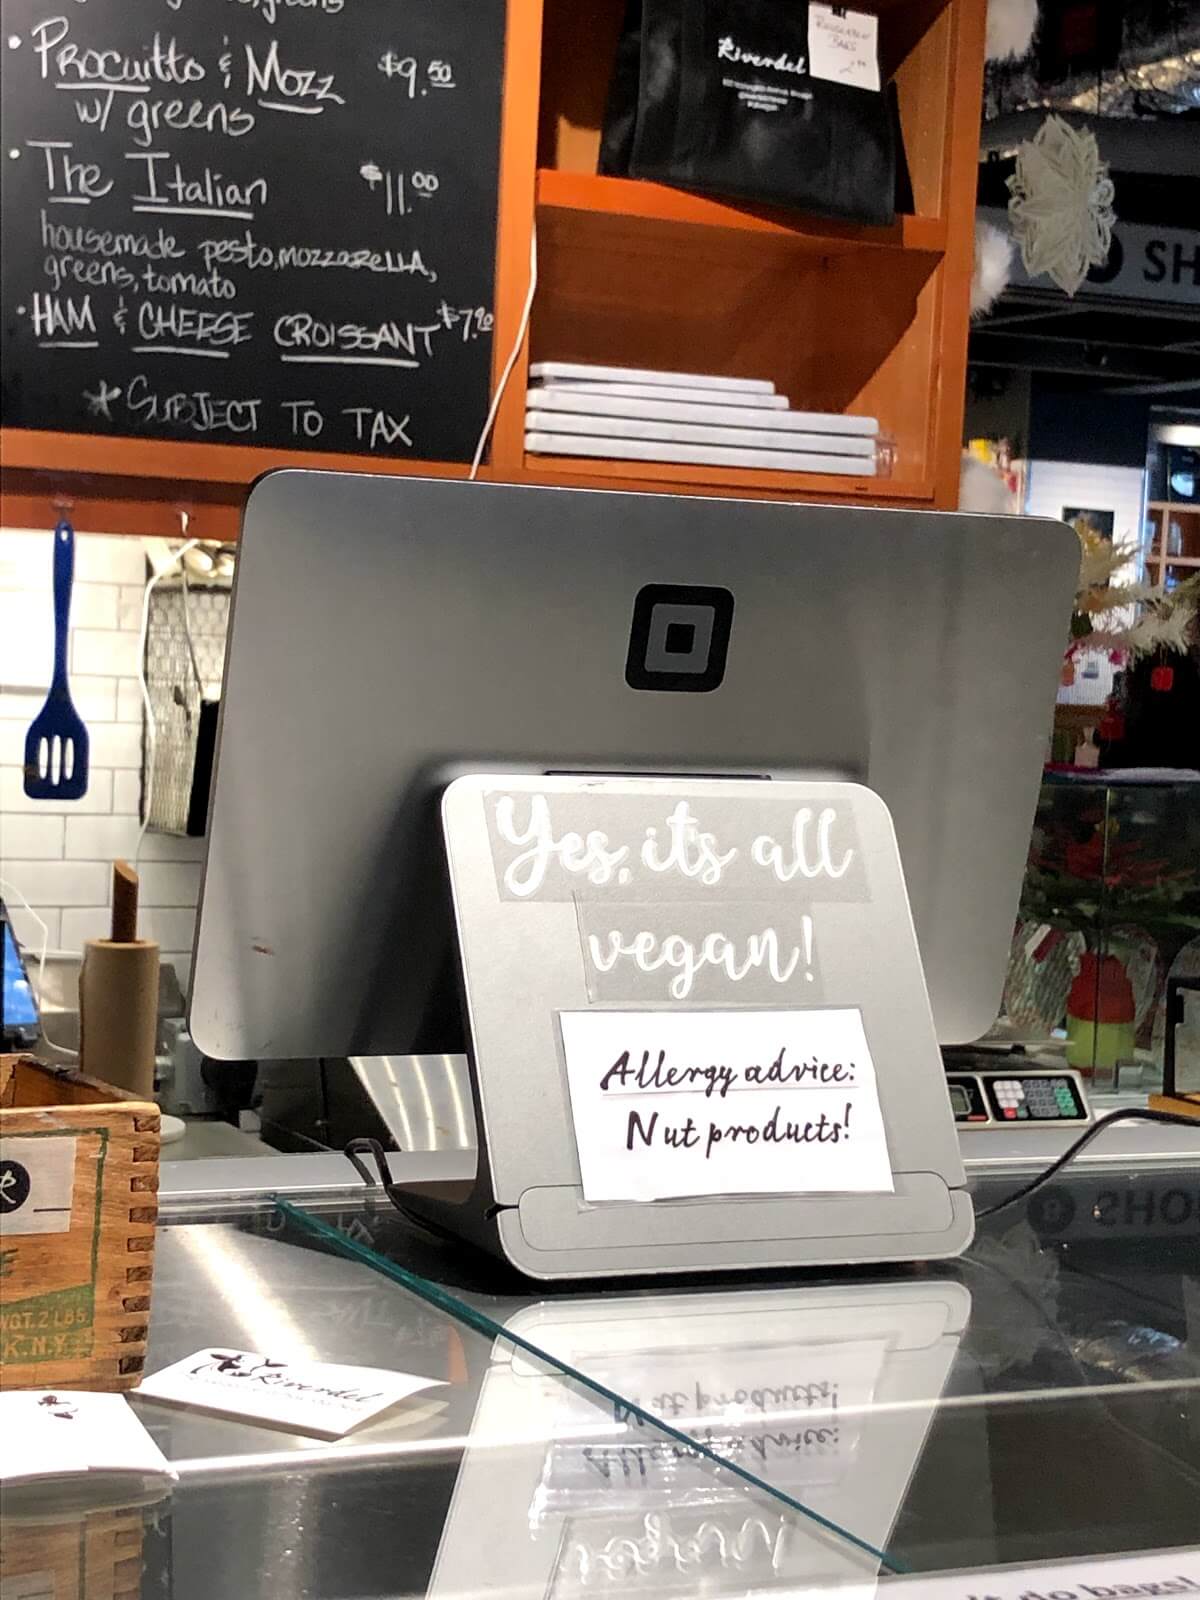 • Procuitto & Mozz $9.50
w/ greens
• The Italian $11.00
housemade pesto, mozzarella,
greens, tomato
• HAM & CHEESE CROISSANT $7.90
* SUBJECT TO TAX
Riverdel
REUSABLE
BAGS
SHO
Yes, its all
vegan!
Allergy advice:
Nut products!
R
WGT. 2 LBS.
K. N.Y.
Riverdel
't do bags!